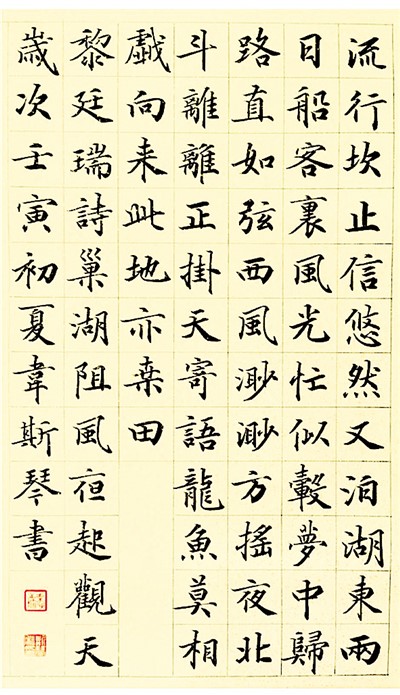 流行坎止信悠然又泊湖東兩
日船客裏風光忙似轂夢中歸
路直如弦西風渺渺方搖夜北
斗離離正掛天寄語龍魚莫相
戲向来此地亦桒田
黎廷瑞詩巢湖阻風亱起觀天
歲次壬寅初夏韋斯琴書